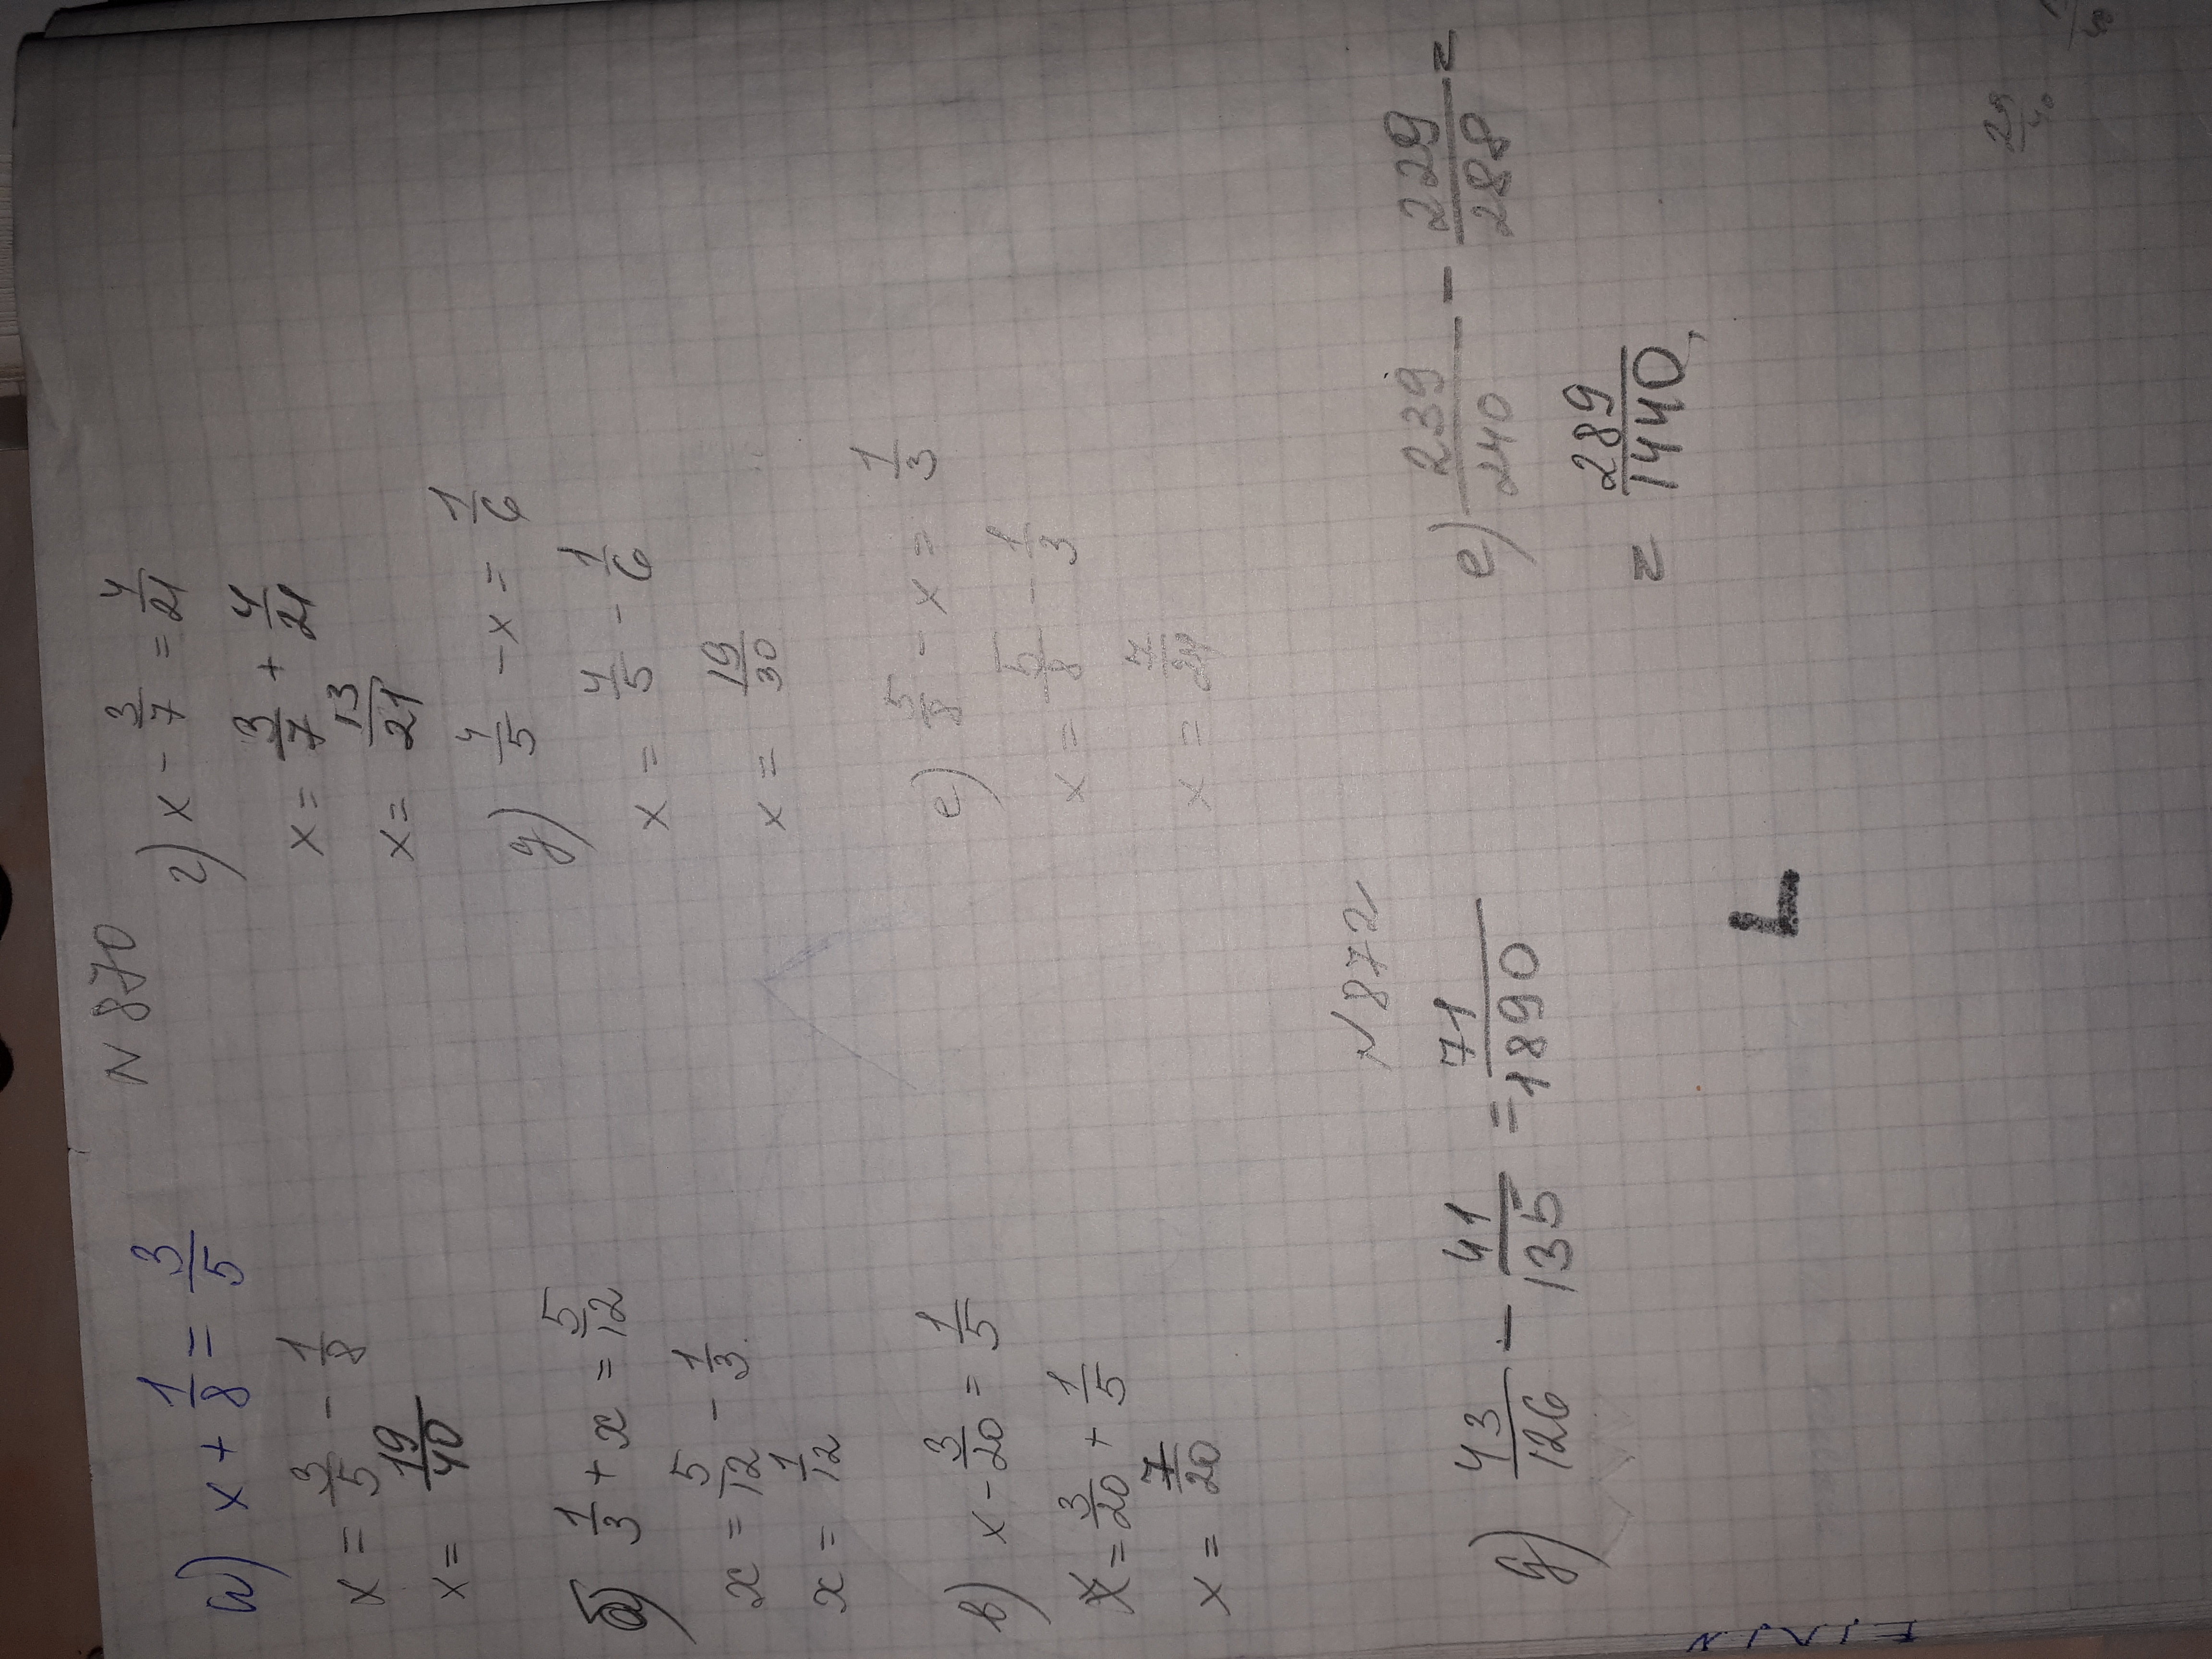 N 870
а) x + 1/8 = 3/5
x = 3/5 - 1/8
x = 19/40
б) 1/3 + x = 5/12
x = 5/12 - 1/3
x = 1/12
в) x - 3/20 = 1/5
x = 3/20 + 1/5
x = 7/20
г) x - 3/7 = 4/21
x = 3/7 + 4/21
x = 13/21
д) 4/5 - x = 1/6
x = 4/5 - 1/6
x = 19/30
е) 5/8 - x = 1/3
x = 5/8 - 1/3
x = 7/24
N 872
д) 43/126 - 41/135 = 71/1890
е) 239/240 - 229/288 =
= 289/1440,